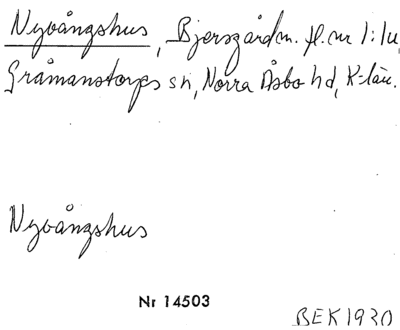 Nyvångshus, Bjersgård m. fl. nr 1:1u,
Gråmanstorps sn, Norra Åsbo hd, K-län.
Nyvångshus
Nr 14503
BEK 1930